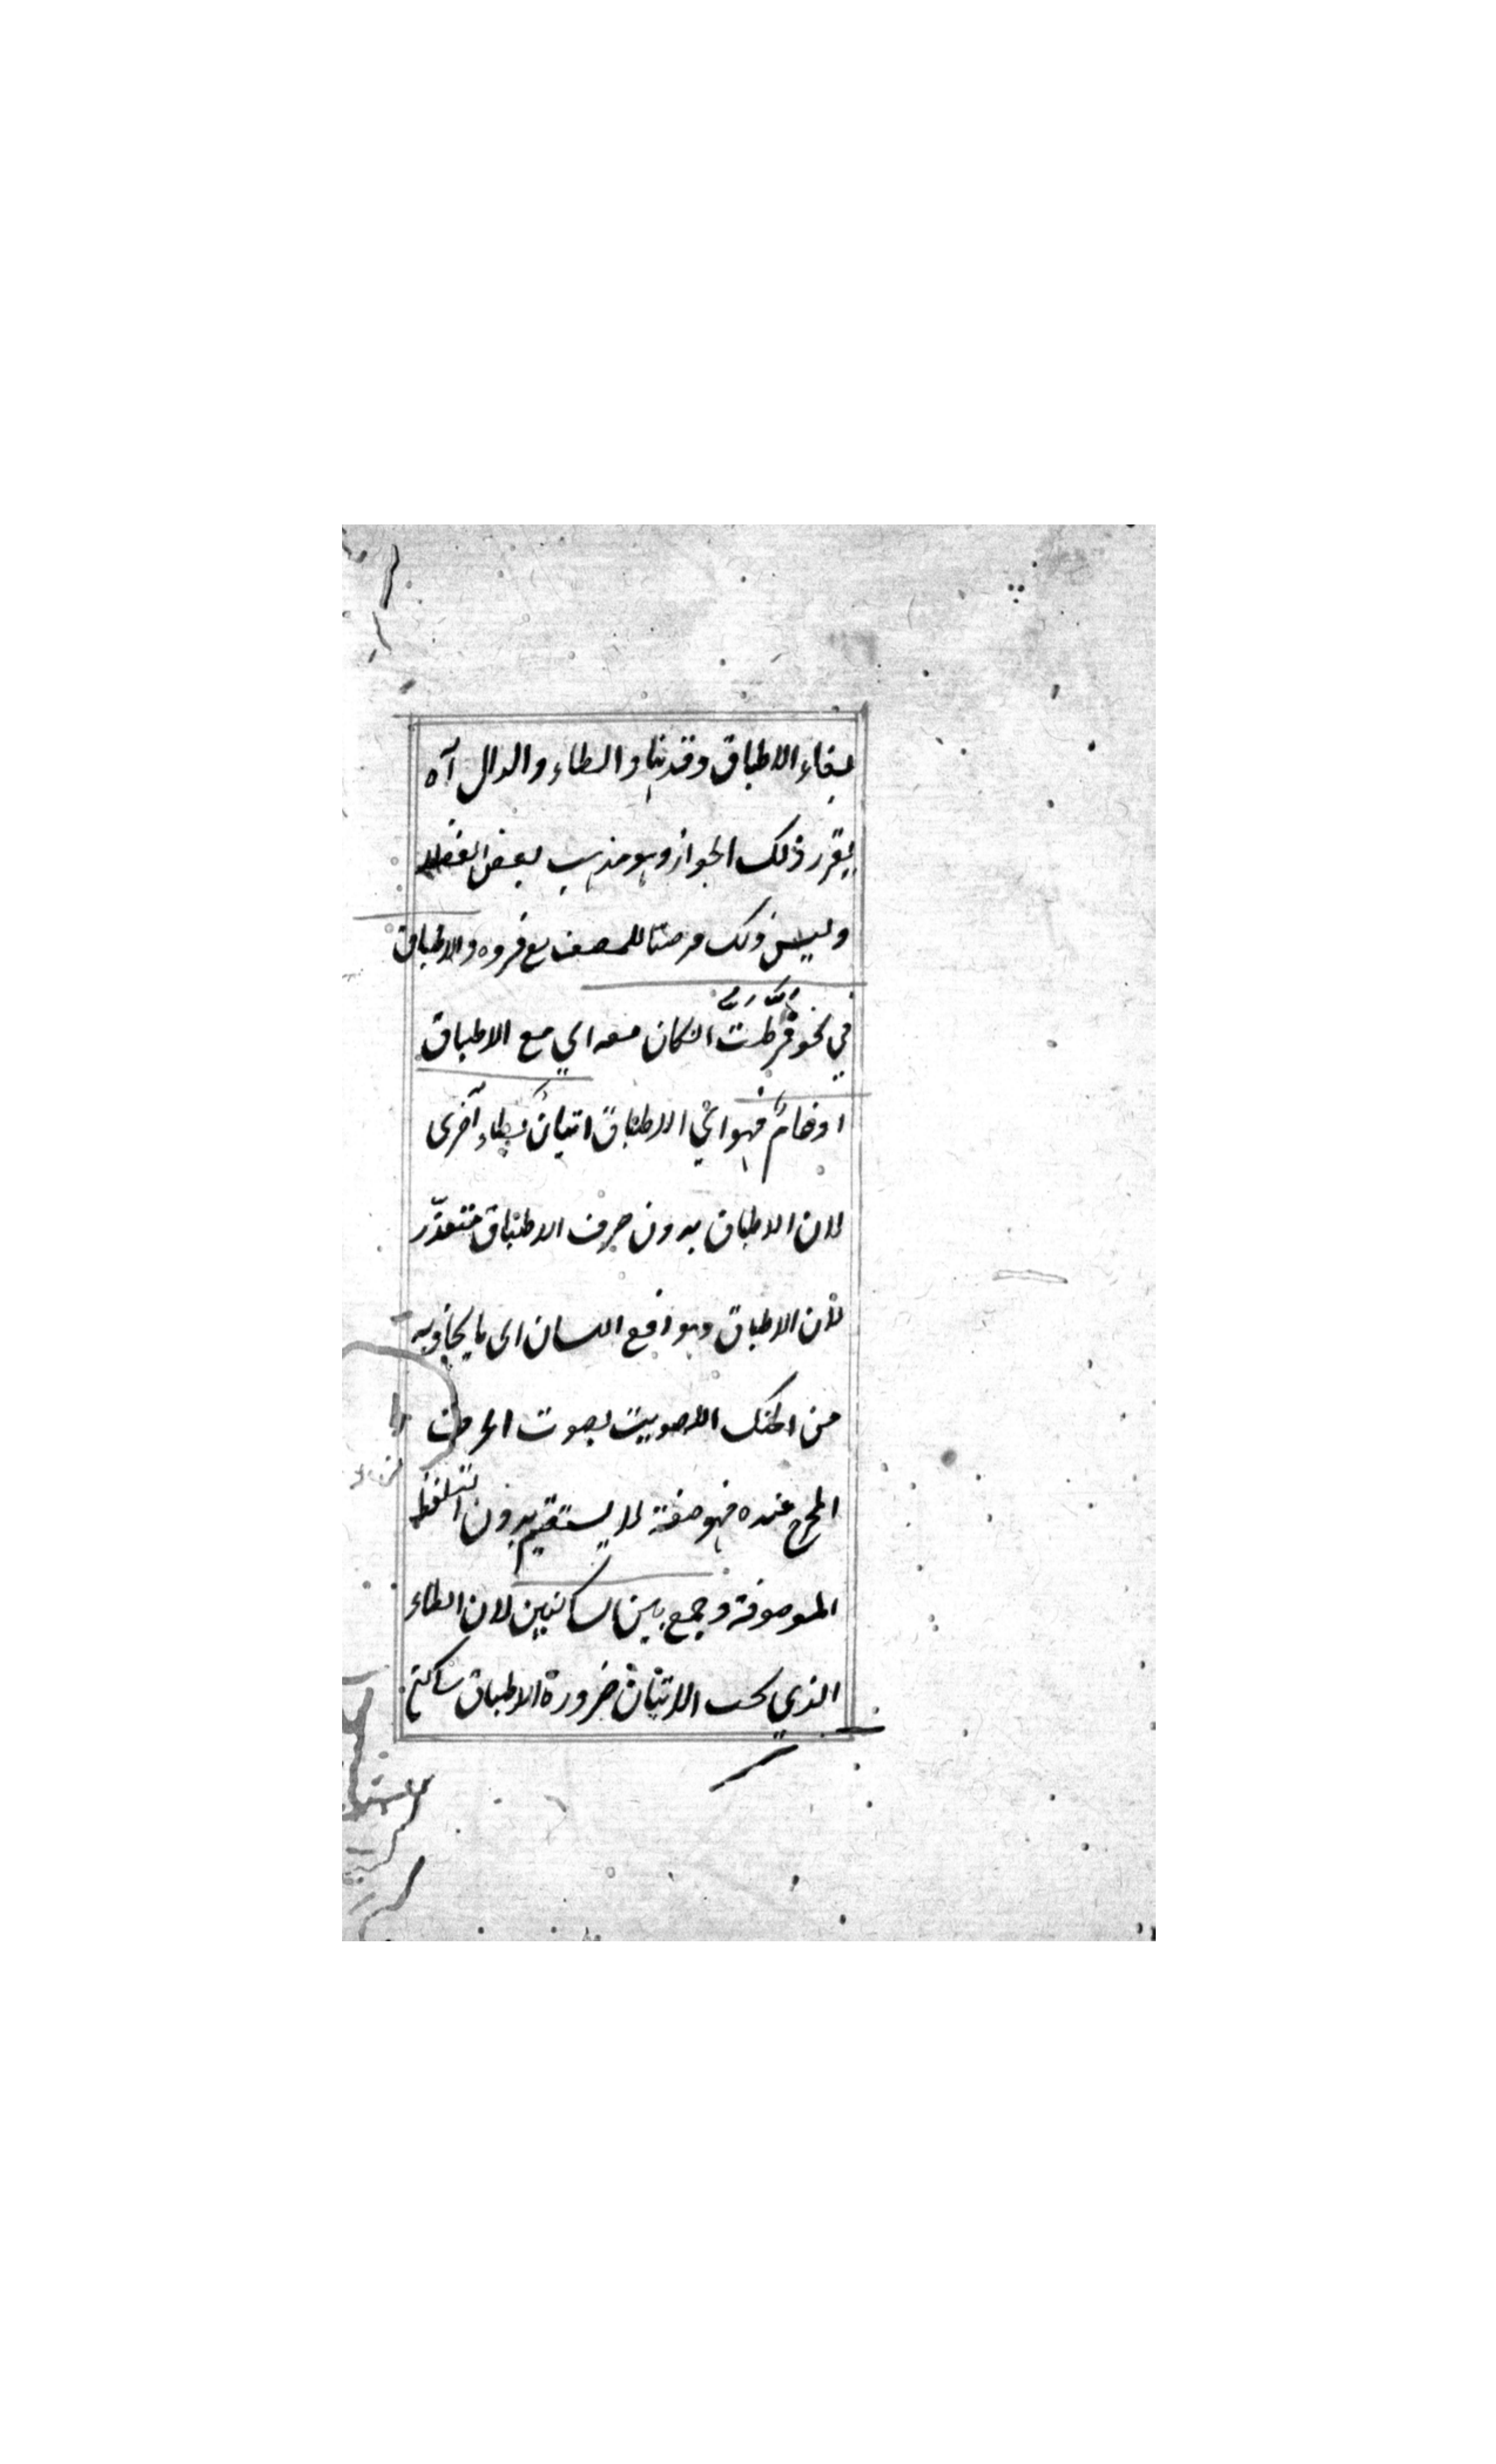 بقاء الاطباق وقد بينا والطاء والدال آه
يقرر ذلك الجواز وهو مذهب بعض الفضلاء
وليس ذلك مرضيا للمصنف مع فروه والاطباق
في نحو فرطت ان كان معه اي مع الاطباق
ادغام فهو اي الاطباق اتيان بطاء آخرى
لان الاطباق بدون حرف الاطباق متعذّر
لأن الاطباق وهو رفع اللسان الى ما يحاذيه
من الحنك التصويت بصوت الحرف
المخرج عنده فهو صفة لا يستقيم بدون التلفظ
الموصوفة وجمع بين ساكنين لان الطاء
الذي يجب الاتيان ضرورة الاطباق ساكنة